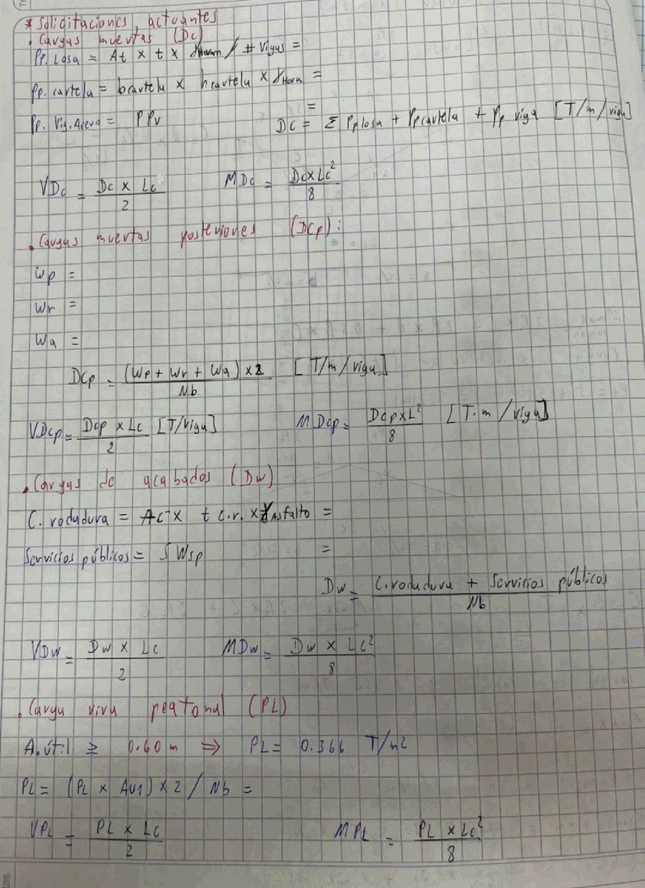 * Solicitaciones actuantes
. Cargas muertas (Dc)
Pp. Losa = At x t x γHorm / # Vigas =
Pp. cartela = bcartela x hcartela x γHorm =
Pp. Vig. Acera = PPv =
Dc = Σ Pplosa + Ppcartela + Pp viga [T/m/viga]
VDc = Dc x Lc / 2 MDc = Dc x Lc² / 8
. Cargas muertas posteriores (DCp):
Wp =
Wr =
Wa =
DCp = (Wp + Wr + Wa) x 2 / Nb [T/m/viga]
VDcp = Dcp x Lc / 2 [T/viga] MDcp = Dcp x L² / 8 [T.m/viga]
. Cargas de acabados (Dw)
C. rodadura = Ac x t c.r. x γAsfalto =
Servicios públicos = S Wsp =
Dw = C.rodadura + Servicios públicos / Nb
VDw = Dw x Lc / 2 MDw = Dw x Lc² / 8
. Carga viva peatonal (PL)
A.útil ≥ 0.60 m ⇒ PL = 0.366 T/m2
PL = (PL x Au1) x 2 / Nb =
VPL = PL x Lc / 2 MPL = PL x Lc² / 8